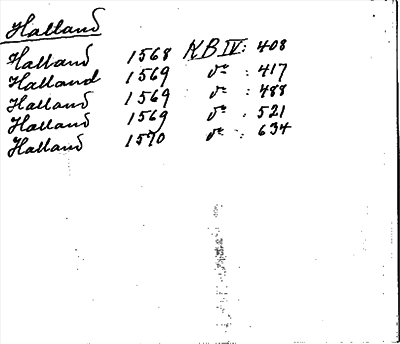 Halland
Halland 1568 KB IV: 408
Halland 1569 do : 417
Halland 1569 do : 488
Halland 1569 do : 521
Halland 1570 do : 634